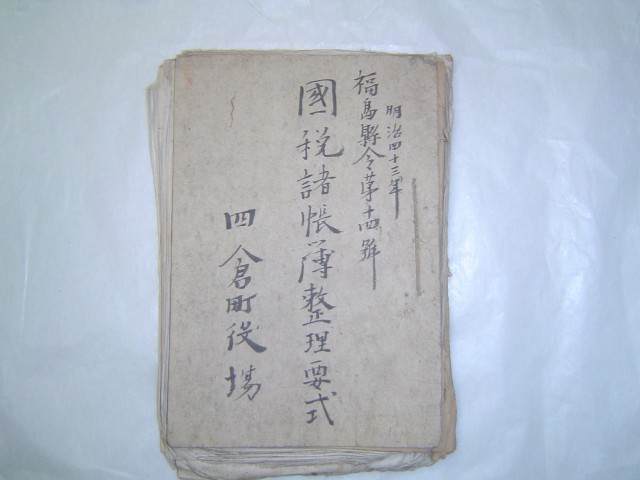 明治四十三年
福島縣令第十四號
國稅諸帳簿整理要式
四倉町役場